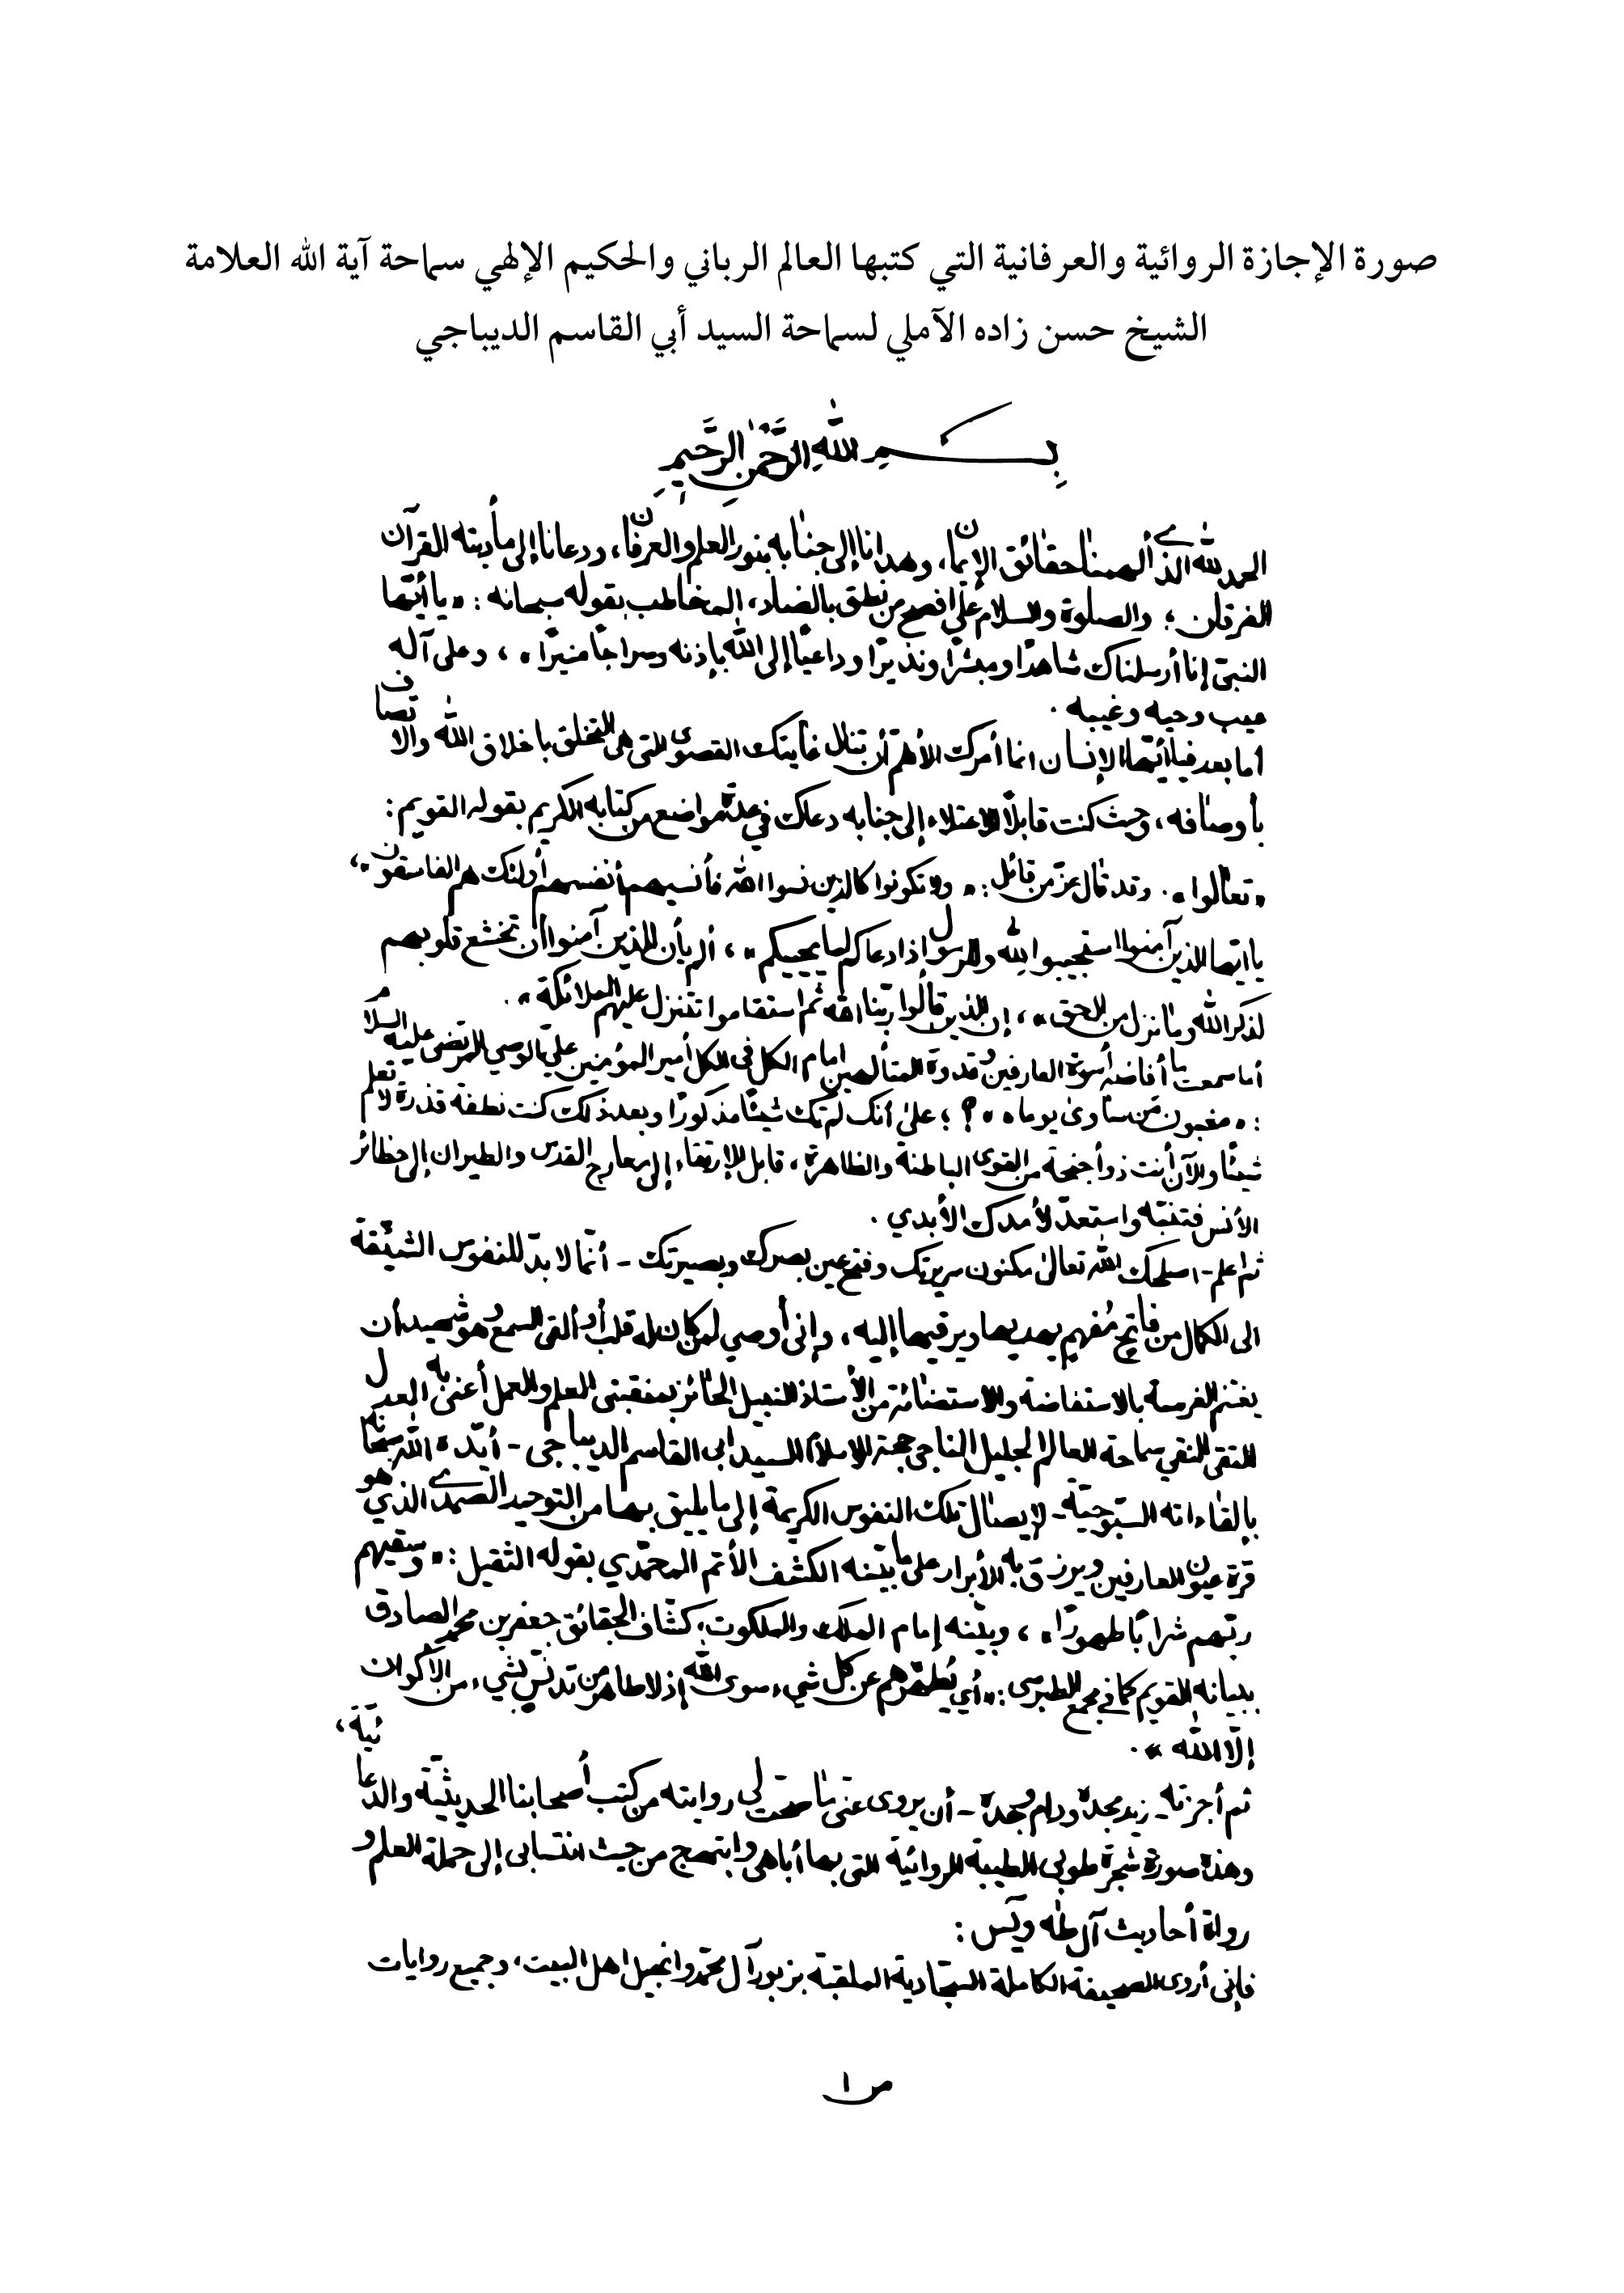 صورة الإجازة الروائية والعرفانية التي كتبها العالم الرباني والحكيم الإلهي سماحة آية الله العلامة
الشيخ حسن زاده الآملي لسماحة السيد أبي القاسم الديباجي
بِسْمِ اللهِ الرَّحْمٰنِ الرَّحِيمِ
الحمد لله الذي ألهمنا حقائق الإيمان، وهدانا إلى جنابه بنور العلم والعرفان، ودعانا إلى مأدبته القرآن
الفرقان؛ والصلوة والسلام على افصح من نطق بالضاد، المخاطب بقوله سبحانه: «يا أيّها
النبيّ إنا أرسلناك شاهدًا ومبشرًا ونذيرًا وداعيًا إلى الله بإذنه وسراجًا منيرًا»، وعلى آله
عيب وحيه وغيبه.
اما بعد فيا أيّها الإنسان انما أمرك الأهمّ أن تنال غايتك القصوى التى هى التخلق باخلاق الله والاتصاف
بأوصافه، وحيث كنت قابلًا للاعتلاء إلى جنابه دعاك في عدة مواضع من كتابه الكريم بقوله القويم:
«تعالوا». وقد قال عزّ من قائل: «ولا تكونوا كالذين نسوا الله فأنسيهم أنفسهم أولئك هم الفاسقون»،
يا ايها الذين آمنوا استجيبوا لله وللرسول اذا دعاكم لما يحييكم»، ألم يأن للذين آمنوا أن تخشع قلوبهم
لذكر الله وما نزل من الحق»، إن الذين قالوا ربّنا الله ثم استقاموا تتنزل عليهم الملائكة».
أما سمعت ما أفاضه أسوة العارفين وقدوة المتألهين امام الكل فى الكل أمير المؤمنين عليّ الوصي المرتضى عليه السلام
: «مغبون من ساوى يوماه»؟؛ على أنك لم تك شيئًا مذكورًا وبعد ذلك كنت نطفة قذرة لا تعلم
شيئًا والآن أنت ذو أجنحة من القوى الباطنة والظاهرة، قابل للإرتقاء إلى معارج القدس والطيران إلى حظائر
الأنس فتنبّه واستعدّ لأمدك الأبدي.
ثم اعلم - اصلحك الله تعالى مكنون سريرتك وفتح عين بصرك وبصيرتك - أنّما لا بدّ للنفوس الشيّقة
الى الكمال من فاتح مُفهم يهديها ويرقيها إليه، وإنى أوصي لمن كان له قلب أو ألقى السمع وهو شهيد أن
يغتنم الفرصة بالاستفاضة والاستضائة من الأستاذ النبيل الحائز بمنقبتى العلم والعمل أعنى به العدل
التقى النقي سماحة العالم الجليل الناجى حجة الإسلام السيد ابى القاسم الديباجى - أيّده الله سبحانه
بإلقاءاته السبّوحيّة - لإيصال تلك النفوس الكريمة إلى ما يليق بها من التوحيد الصمدي الذي هو
قرة عيون العارفين ويرزق به الأبرار على ما بيّنه الكشف الأتم المحمّدي بقوله الثقيل: «وسقيهم
ربّهم شرابًا طهورًا»، وبيّنه إمام الملك والملكوت، كشّاف الحقائق جعفر بن محمد الصادق
ببيانه القويم كما في مجمع الطبرسى: «أي يُطهّرهم عن كل شيء سوى الله إذ لا طاهر من تدنّس بشيء من الأكوان
إلّا الله».
ثم أجزته - زيد مجده ودام وجده - أن يروى عنى ما صحّت لى روايته من كتب أصحابنا الحديثيّة والدعائيّة،
وهذه صورة شجرة طوبى الطيبة الروائية التى بها أباهى وابتهج من حيث انتسابى إلى حملة العلم و
رواة أحاديث آل طه ويس:
فإنى أروى الصحيفة الكاملة السجّادية الملقبة بزبور آل محمّد وانجيل اهل البيت، وجميع روايات
ص ١